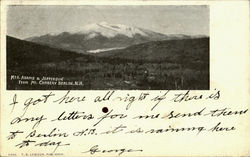 MTS. ADAMS & JEFFERSON
FROM MT. CARBERRY BERLIN, N.H.
I got here all right if there is
any letters for me send them
to Berlin N.H. it is raining here
to day
Georges